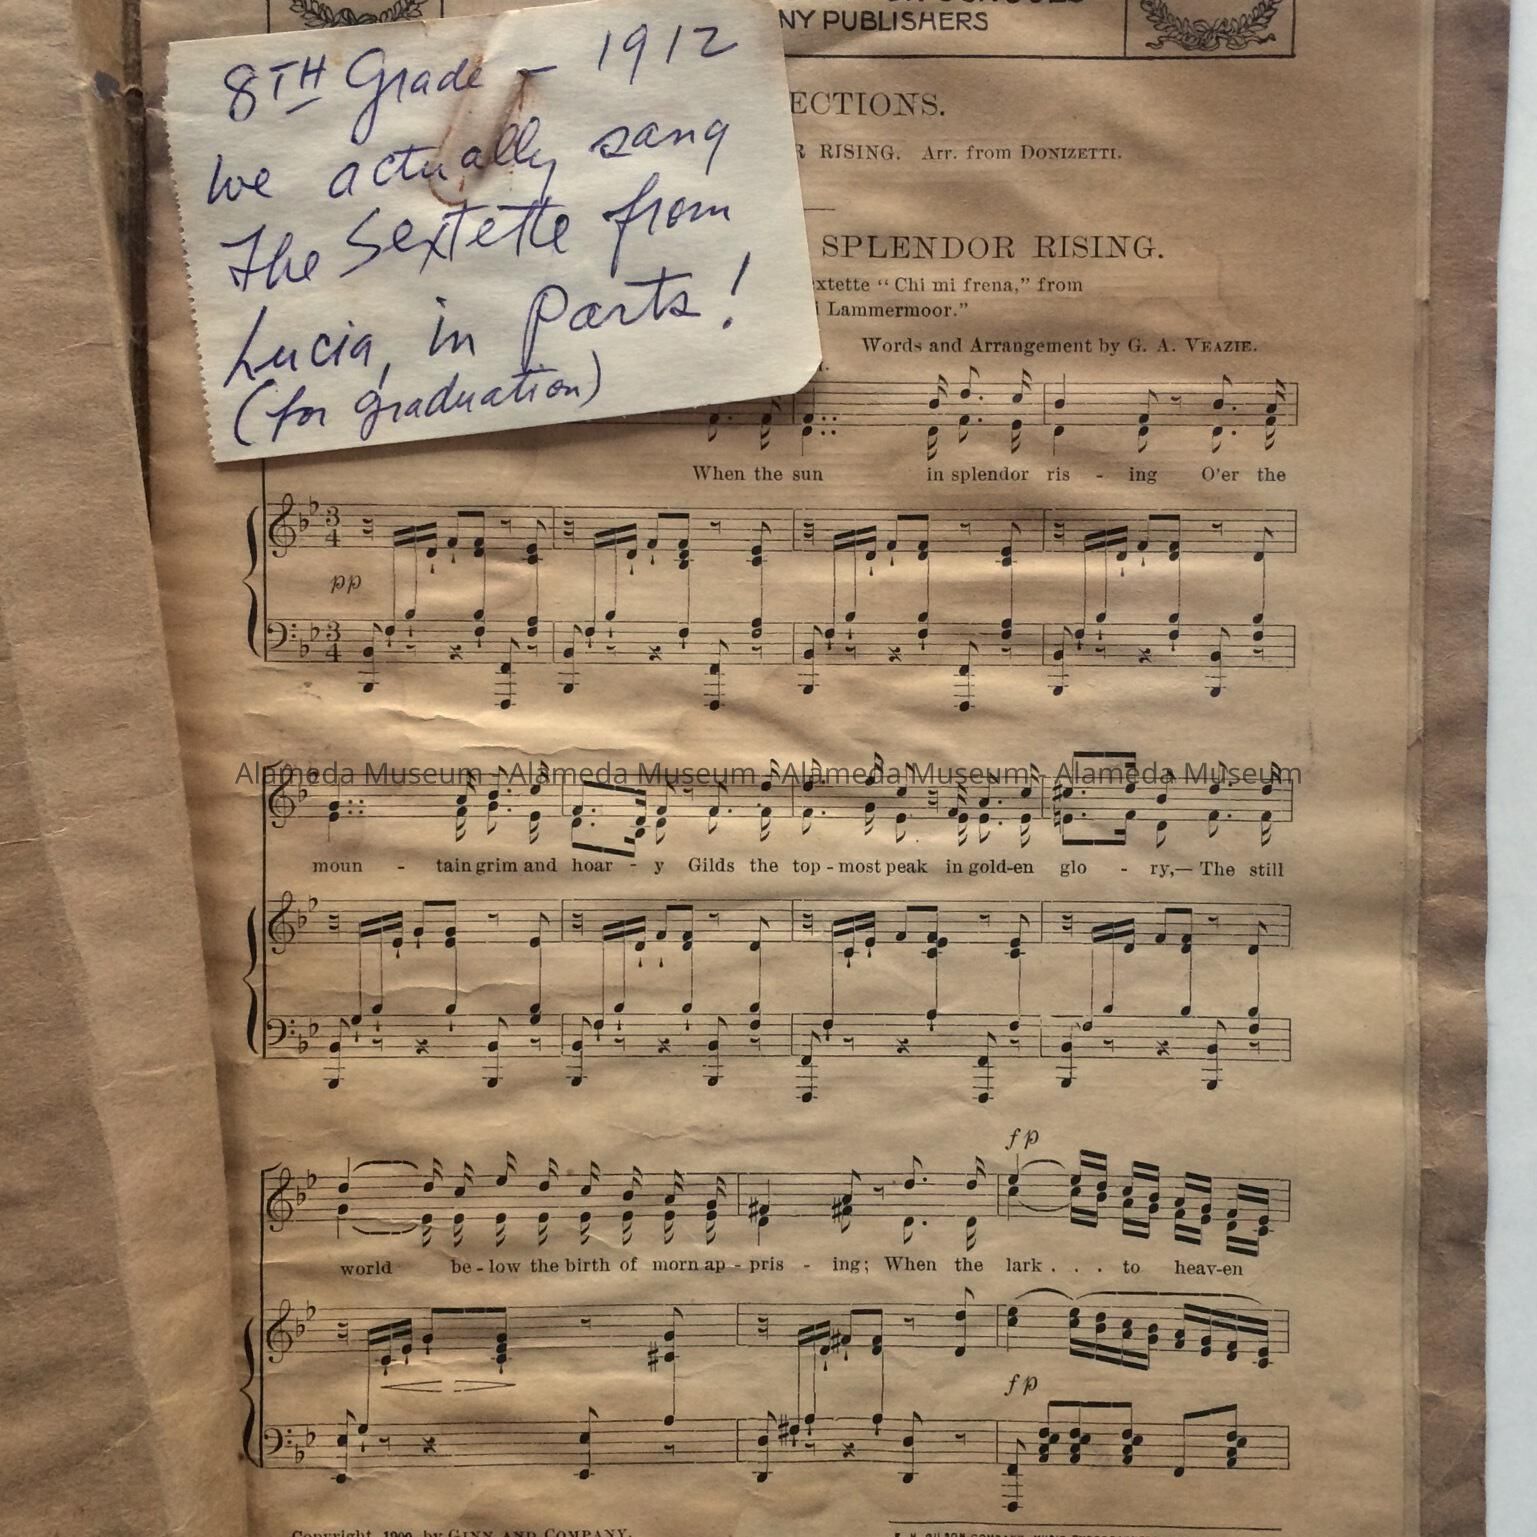 NY PUBLISHERS
8TH Grade - 1912
We actually sang
The Sextette from
Lucia, in Parts!
(for graduation)
ECTIONS.
R RISING. Arr. from DONIZETTI.
SPLENDOR RISING.
extette "Chi mi frena," from
i Lammermoor."
Words and Arrangement by G. A. VEAZIE.
When the sun in splendor ris - ing O'er the
3 4
pp
3 4
Alameda Museum - Alameda Museum - Alameda Museum - Alameda Museum
moun - tain grim and hoar - y Gilds the top - most peak in gold-en glo - ry,— The still
fp
world be - low the birth of morn ap - pris - ing; When the lark . . . to heav-en
fp
Copyright, 1900, by GINN AND COMPANY.